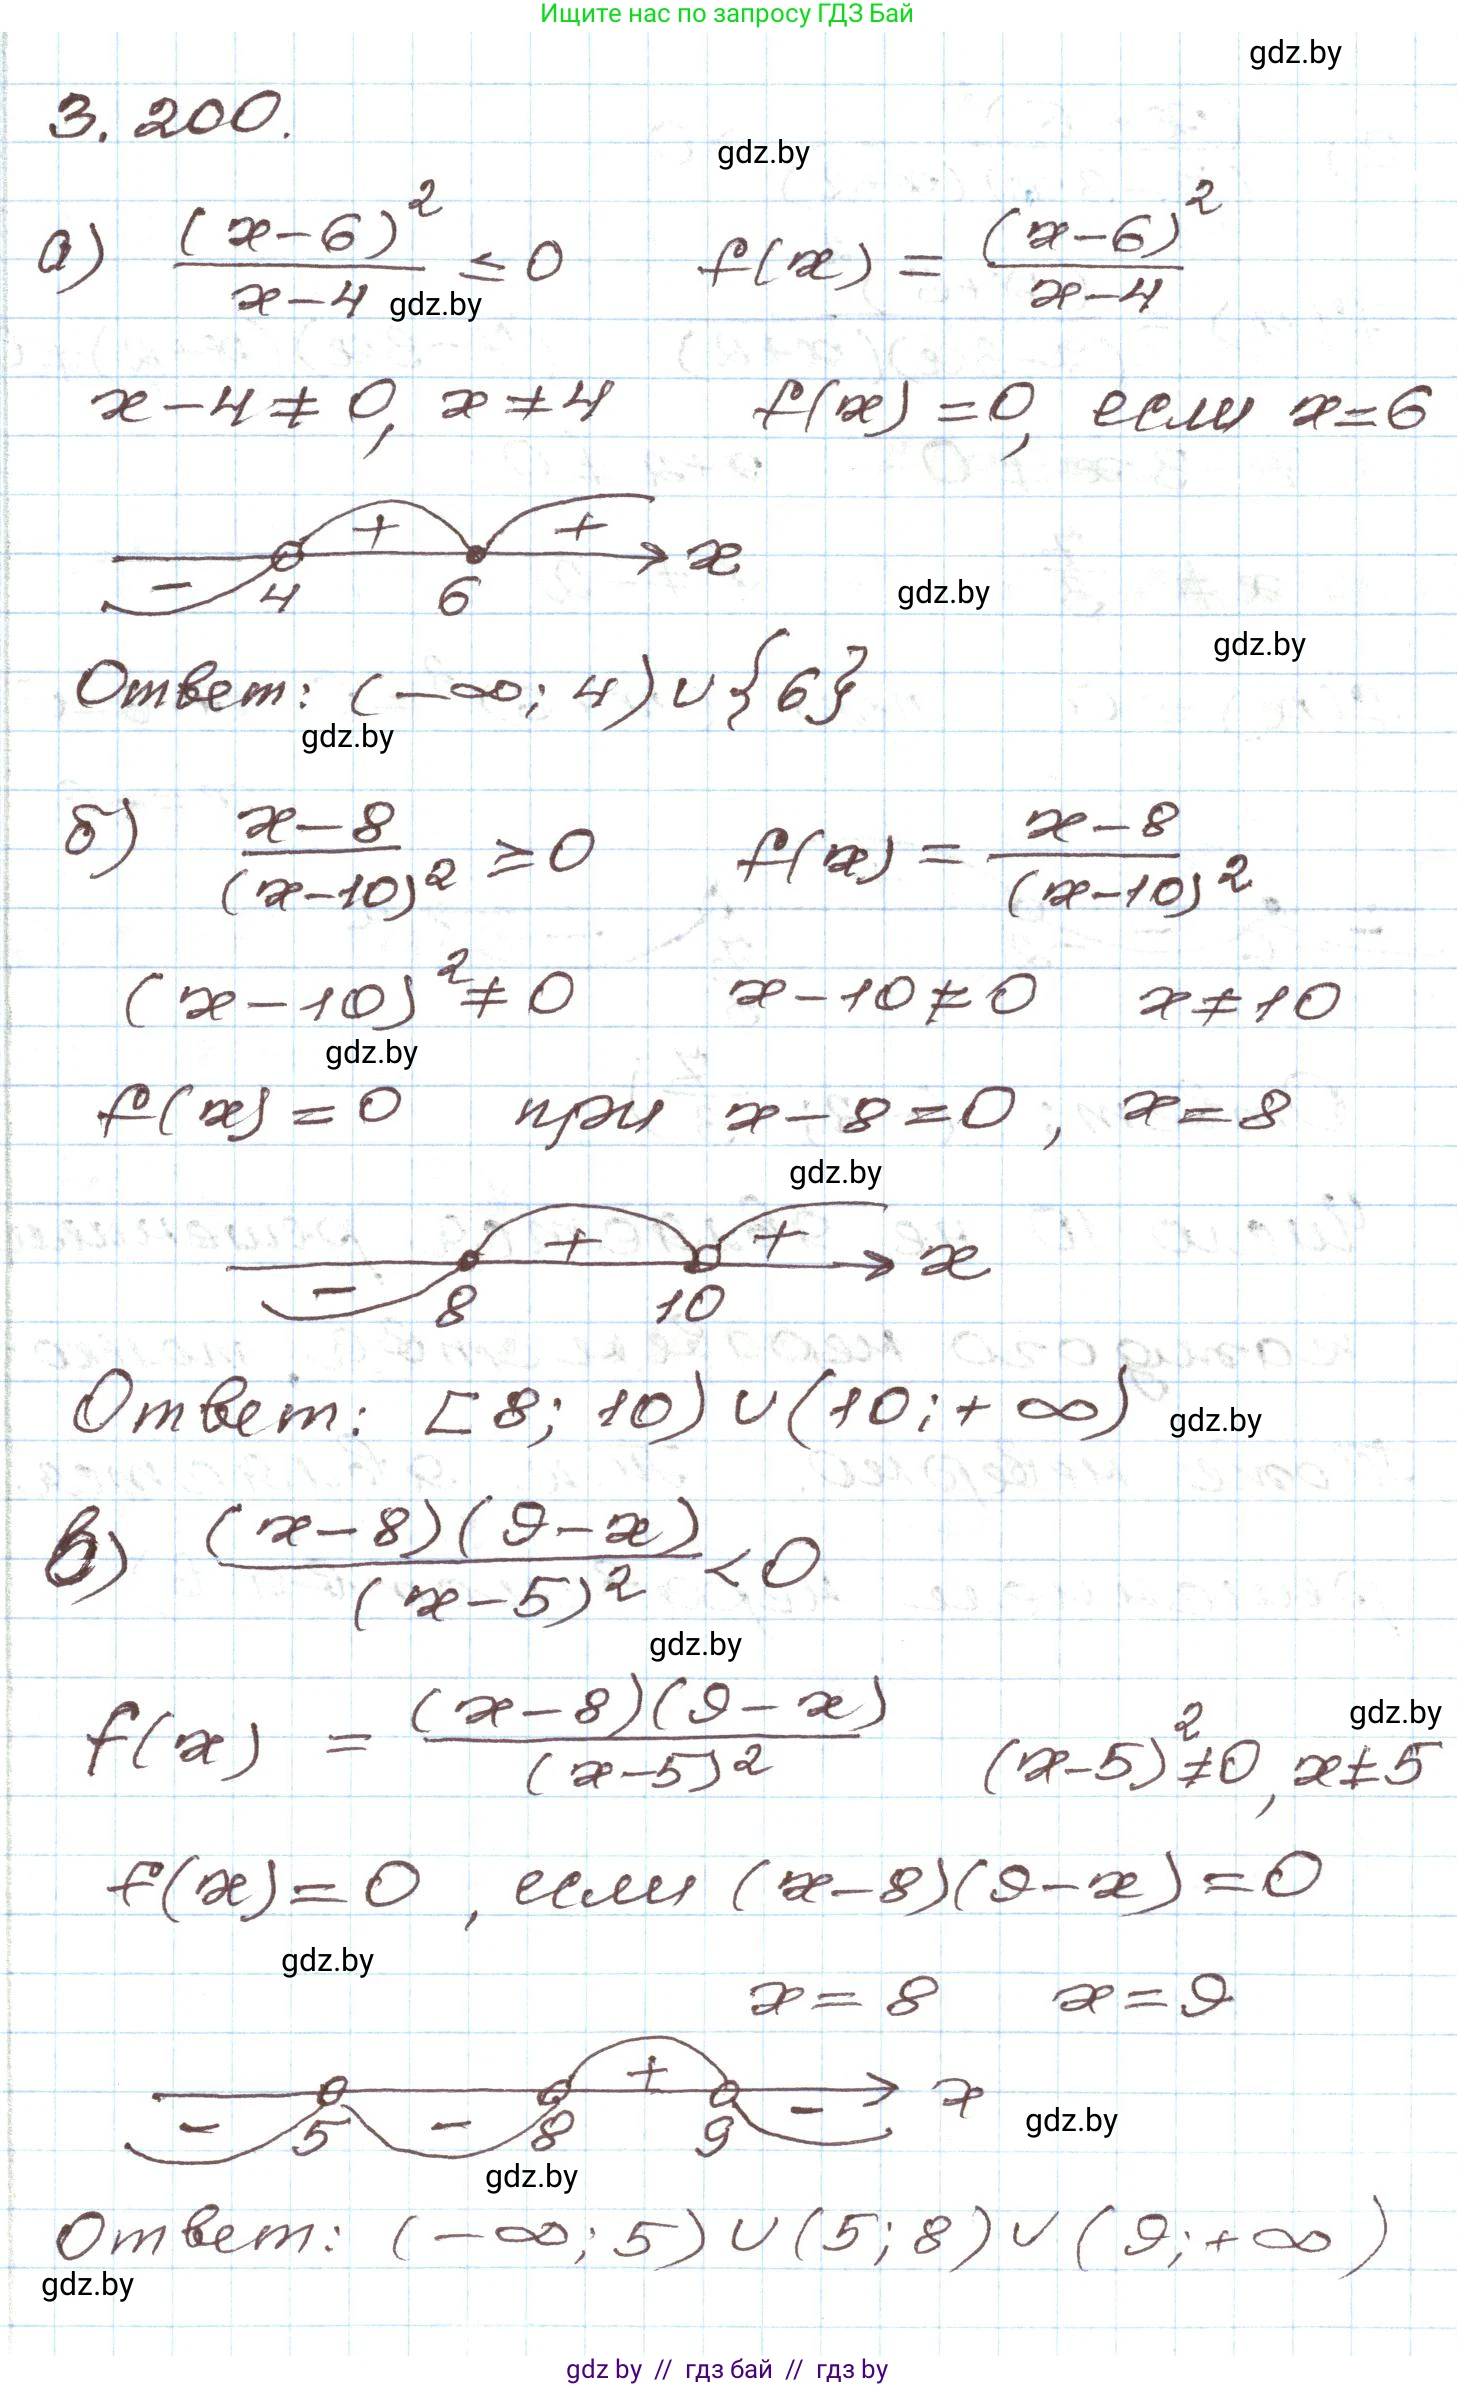 Ищите нас по запросу ГДЗ Бай
gdz.by
3.200.
gdz.by
а) (x-6)²/(x-4) ≤ 0 f(x) = (x-6)²/(x-4)
gdz.by
x-4≠0, x≠4 f(x)=0, если x=6
- + + x
4 6
gdz.by
gdz.by
Ответ: (-∞; 4) ∪ {6}
gdz.by
б) (x-8)/(x-10)² ≥ 0 f(x) = (x-8)/(x-10)²
(x-10)²≠0 x-10≠0 x≠10
gdz.by
f(x)=0 при x-8=0, x=8
gdz.by
- + + x
8 10
Ответ: [8; 10) ∪ (10; +∞)
gdz.by
в) (x-8)(9-x)/(x-5)² < 0
gdz.by
f(x) = (x-8)(9-x)/(x-5)² (x-5)²≠0, x≠5
gdz.by
f(x)=0, если (x-8)(9-x)=0
gdz.by
x=8 x=9
- - + - x
5 8 9
gdz.by
gdz.by
Ответ: (-∞; 5) ∪ (5; 8) ∪ (9; +∞)
gdz.by
gdz by // гдз бай // гдз by